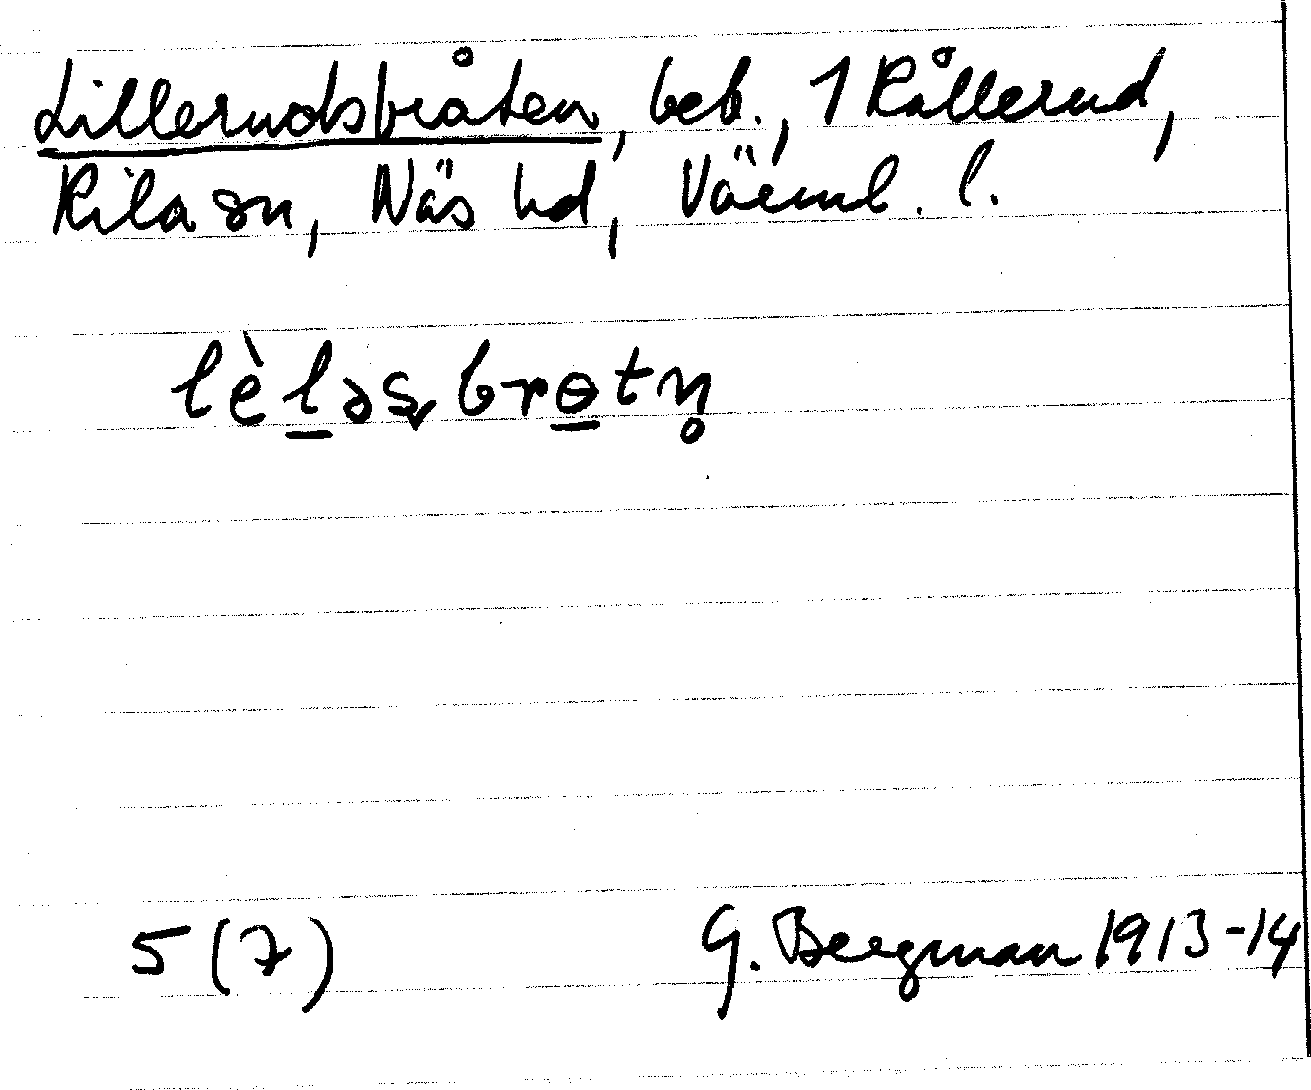 Lillerudsbråten, beb., 1 Rållerud,
Kila sn, Näs hd, Värml. l.
lèl̲əʂbrɵ̲tn̥
5 (7) G. Bergman 1913-14